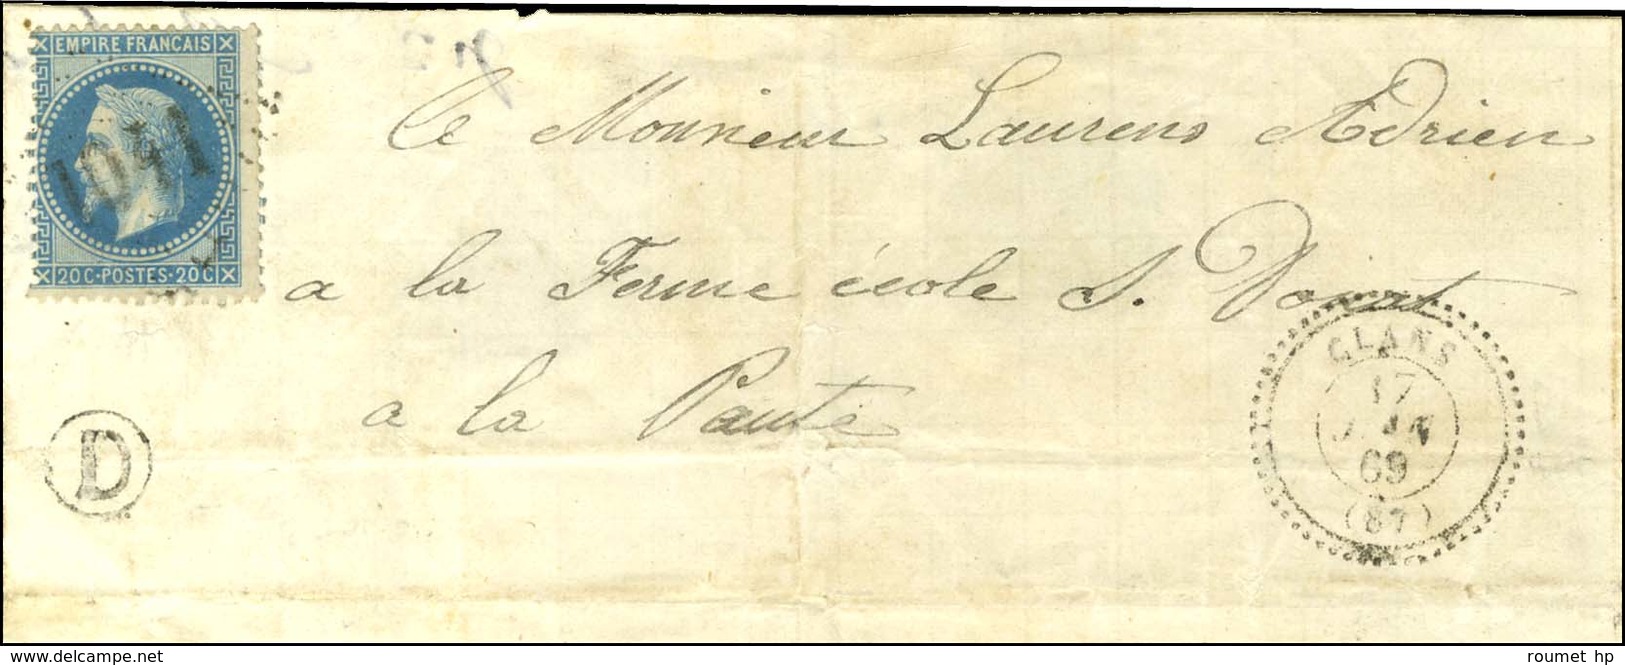 EMPIRE FRANCAIS
1041
20 C · POSTES · 20 C
le Monsieur Laurens Adrien
a la Ferme école S.
a la
CLANS
17
JAN
69
(87)
D
www.delcampe.net
roumet hp